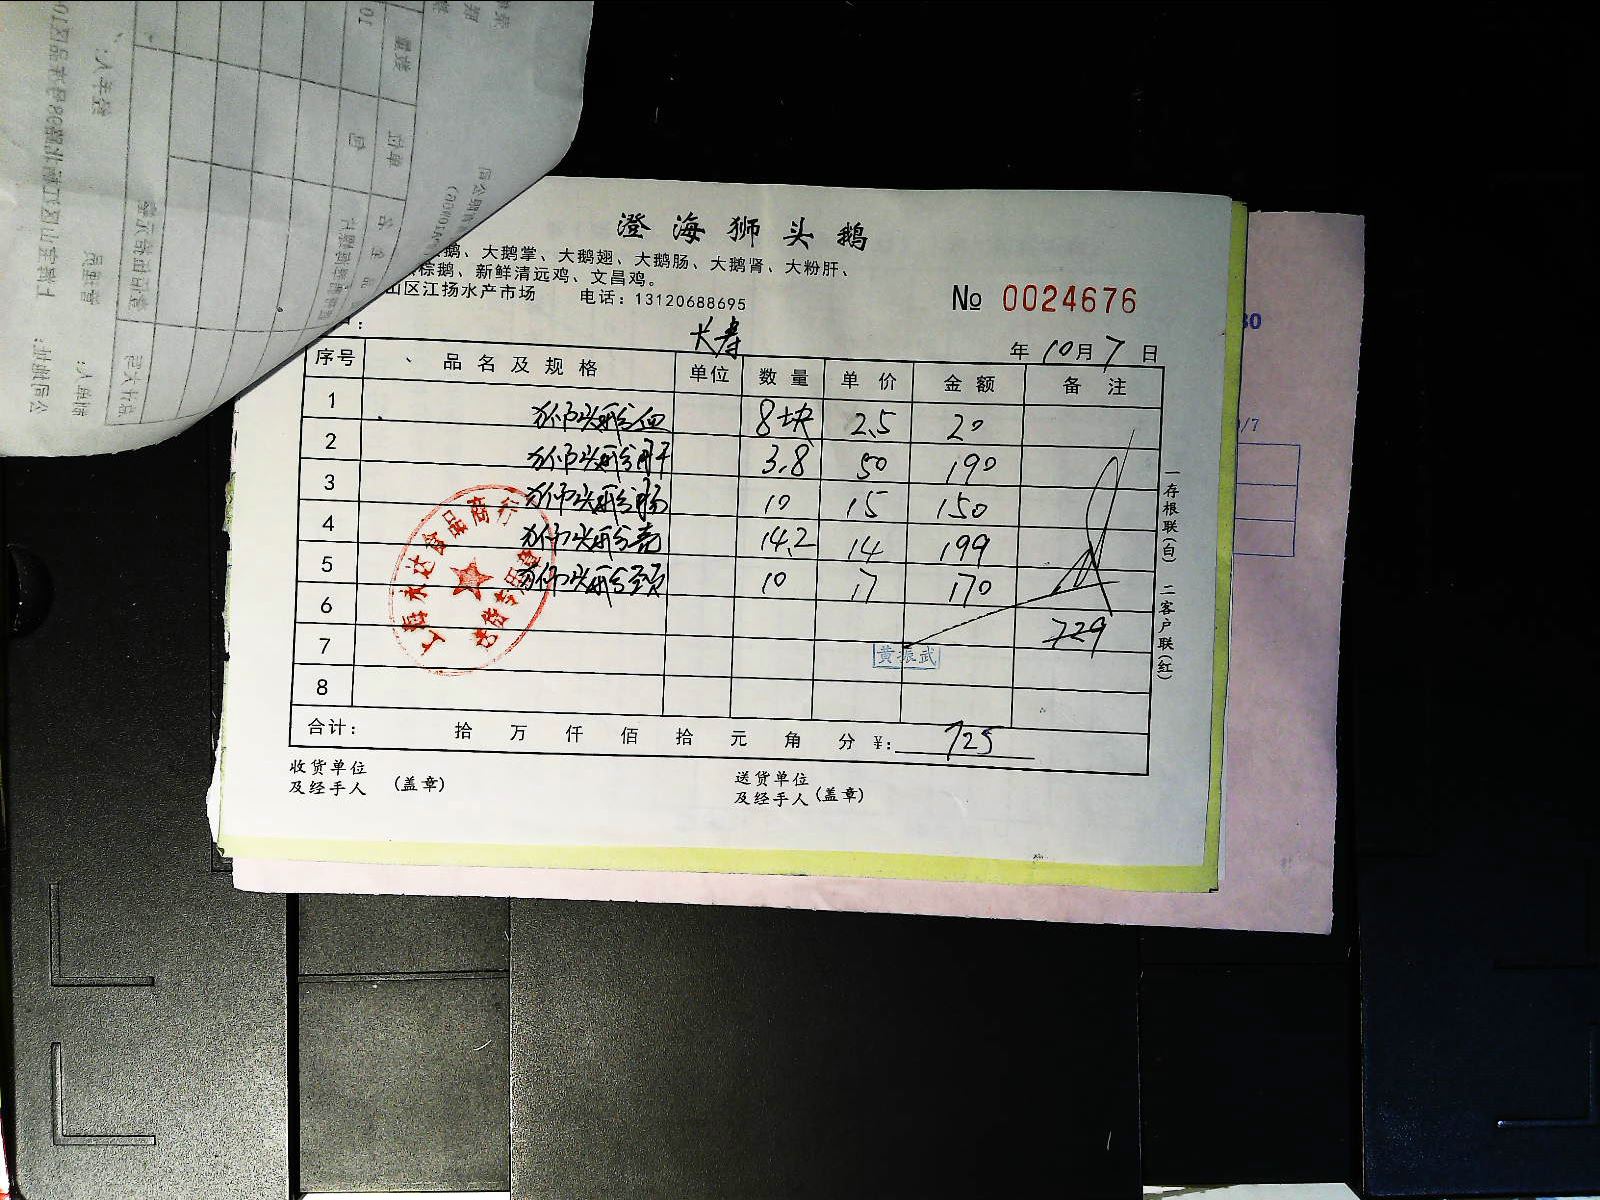 澄海狮头鹅
鹅、大鹅掌、大鹅翅、大鹅肠、大鹅肾、大粉肝、
棕鹅、新鲜清远鸡、文昌鸡。
山区江扬水产市场 电话：13120688695
№ 0024676
长寿
年 10月 7日
序号 品名及规格 单位 数量 单价 金额 备注
1 狮头鹅血 8块 2.5 20
2 狮头鹅肝 3.8 50 190
3 狮头鹅肠 10 15 150
4 狮头鹅壳 14.2 14 199
5 狮头鹅颈 10 17 170
6 729
7
8
黄振武
合计： 拾 万 仟 佰 拾 元 角 分 ¥： 725
收货单位
及经手人 (盖章)
送货单位
及经手人 (盖章)
一存根联(白) 二客户联(红)